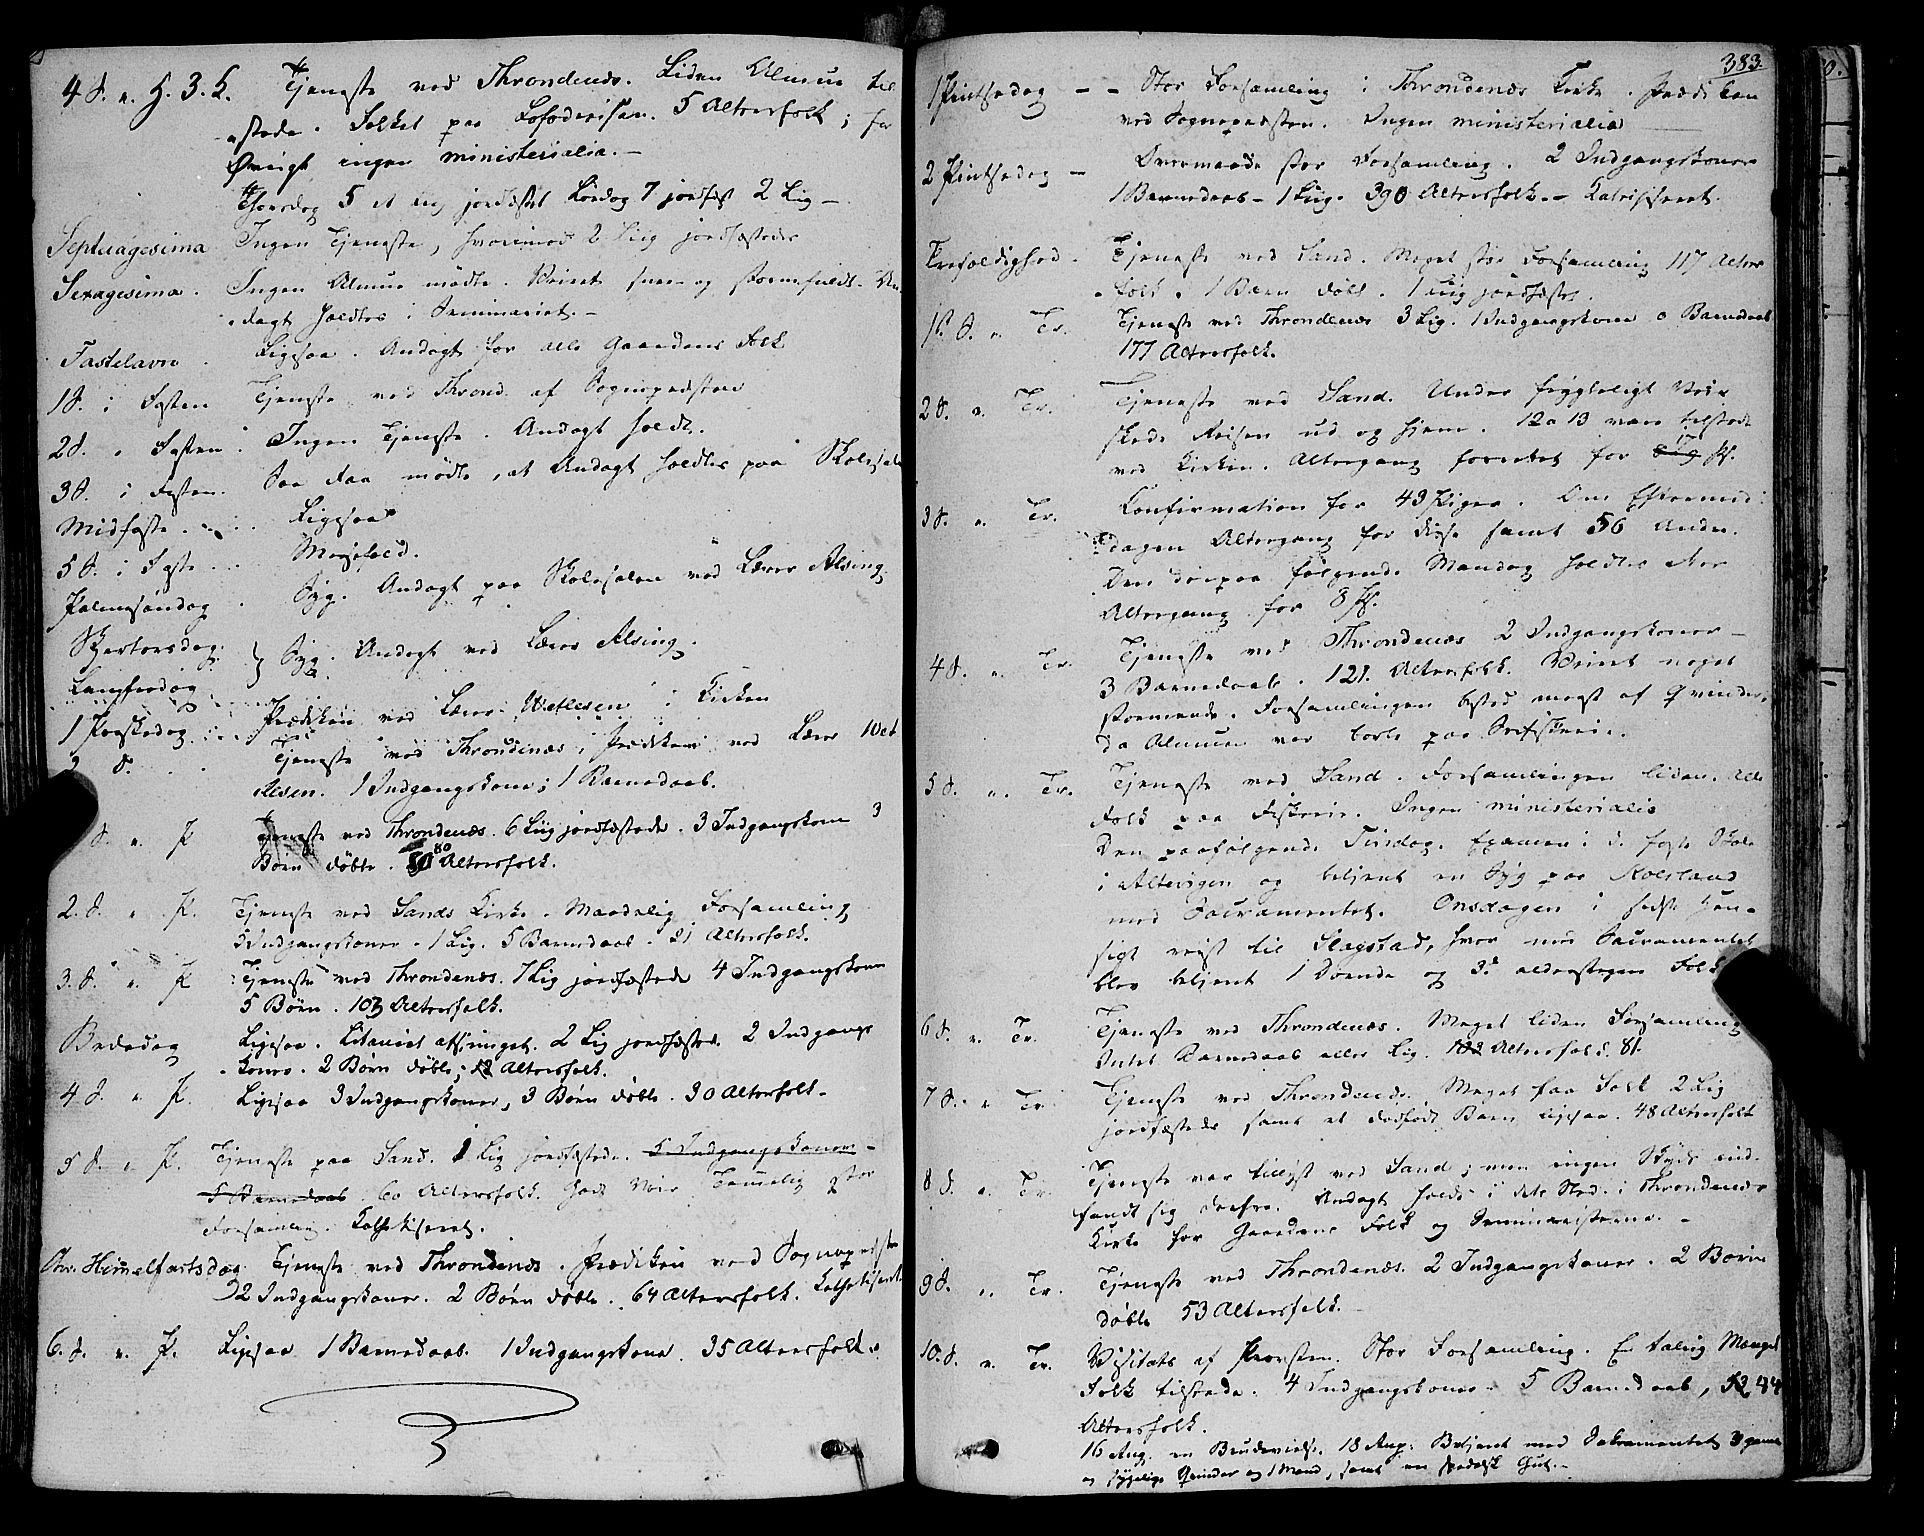 4 S. e. H. 3. K. Tjeneste ved Throndenæs. Liden Almue til
stede. Folket paa Lofodreisen. 5 Altersfolk; for
Øvrigt ingen ministerialia. —
Thorsdag 5 et Lig jordfæstet Lørdag 7 jordfæst 2 Lig —
Septuagesima Ingen Tjeneste, hvorimod 2 Liig jordfæstedes
Sexagesima. Ingen Almue mødte. Veiret snee- og stormfuldt. An-
dagt holdtes i Seminariet. —
Fastelavn. Ligesaa. Andagt for alle Gaardens Folk
1 S. i Fasten Tjeneste ved Thrond. af Sognepræsten
2 S. i Fasten. Ingen Tjeneste. Andagt holdt.
3 S. i Fasten. Saa faa mødte, at Andagt holdtes paa Skolesalen
Midfaste. Ligesaa
5 S. i Faste Messefald.
Palmesøndag. Syg. Andagt paa Skolesalen ved Lærer Alsing.
Skjertorsdag.
Langfredag } Syg. Andagt ved Lærer Alsing.
1 Paaskedag Prædiken ved Lærer Wetlesen i Kirken
2 S. Tjeneste ved Throndenæs, Prædiken ved Lærer Wet
lesen. 1 Indgangskone; 1 Barnedaab.
S. e. P Tjeneste ved Throndenæs. 6 Liig jordfæstede. 3 Indgangskoner 3
Børn døbte. 80 Altersfolk.
2. S. e. P. Tjeneste ved Sands Kirke. Maadelig Forsamling
5 Indgangskoner. 1 Lig. 5 Barnedaab. 21 Altersfolk.
3. S. e. P Tjeneste ved Throndenæs. 1 Lig jordfæstede 4 Indgangskoner
5 Børn. 103 Altersfolk.
Bededag Ligesaa. Litaniet afsunget. 2 Lig jordfæstet. 2 Indgangs
koner. 2 Børn døbte; 12 Altersfolk.
4 S. e. P. Ligesaa 3 Indgangskoner, 3 Børn døbte. 30 Altersfolk.
5 S. e. P. Tjeneste paa Sand. 1 Lig jordfæstede. 5 Indgangskoner —
5 Barnedaab 60 Altersfolk. Godt Veir Temmelig stor
Forsamling. Kathekiseret.
Chr. Himelfartsdag Tjeneste ved Throndenæs. Prædiken ved Sognepræsten
2 Indgangskoner. 2 Børn døbte. 64 Altersfolk. Kathekiseret
6. S. e. P. Ligesaa 1 Barnedaab. 1 Indgangskone. 35 Altersfolk.
383.
1 Pintsedag — — Stor Forsamling i Throndenæs Kirke. Prædiken
ved Sognepræsten. Ingen ministerialia
2 Pintsedag — Overmaade stor Forsamling. 2 Indgangskoner
1 Barnedaab — 1 Liig. 390 Altersfolk. — Katekiseret.
Trefoldighed. Tjeneste ved Sand. Meget stor Forsamling 117 Alters
folk. 1 Barn døbt. 1 Liig jordfæstet.
1. S. e. Tr. Tjeneste ved Throndenæs 3 Lig. 1 Indgangskone 0 Barnedaab
177 Altersfolk.
2 S. e. Tr. Tjeneste ved Sand. Under frygteligt Veir
skede Reisen ud og hjem. 12 a 13 vare tilstede
ved Kirken. Altergang forrettet for 17 P.
3 S. e. Tr. Confirmation for 43 Piger. Om Eftermid-
dagen Altergang for disse samt 56 Andre.
Den derpaa følgende Mandag holdtes
Altergang for 8 P.
4 S. e. Tr. Tjeneste ved Throndenæs 2 Indgangskoner —
3 Barnedaab. 121. Altersfolk. Veiret noget
stormende. Forsamlingen bestod mest af Qvinder,
da Almuen var borte paa
5 S. e. Tr. Tjeneste ved Sand. Forsamlingen liden. Alle
Folk paa Fiskerie. Ingen ministerialia
Den paafølgende Tirsdag Examen i d. faste Skole
i Altevigen og betjent en Syg paa Rolsland
med Sacramentet. Onsdagen i sidste Hen-
sigt reist til Slagstad, hvor med Sacramentet
blev betjent 1 Døende og 3 alderstegen Folk
6 S. e. Tr. Tjeneste ved Throndenæs. Meget liden Forsamling
Intet Barnedaab eller Lig. 102 Altersfolk. 81.
7 S. e. Tr. Tjeneste ved Throndenæs. Meget faa Folk 2 Lig
jordfæstede samt et dødfødt Barn ligesaa. 48 Altersfolk
8 S. e. Tr. Tjeneste var tillyst ved Sand; men ingen Skyds ind-
fandt sig derfra. Andagt holdt i dets Sted i Throndenæs
Kirke for Gaardens Folk og Seminaristerne. —
9 S. e. Tr. Tjeneste ved Throndenæs 2 Indgangskoner. 2 Børn
døbte 53 Altersfolk. —
10. S. e. Tr. Visitats af Provsten. Stor Forsamling. En talrig Mængde
Folk tilstede. 4 Indgangskoner — 5 Barnedaab, 84
Altersfolk.
16 Aug. en Brudevielse. 18 Aug. Betjent med Sakramentet 3 gamle
og sygelige Qvinder og 1 Mand, samt en spedalsk Gut. —